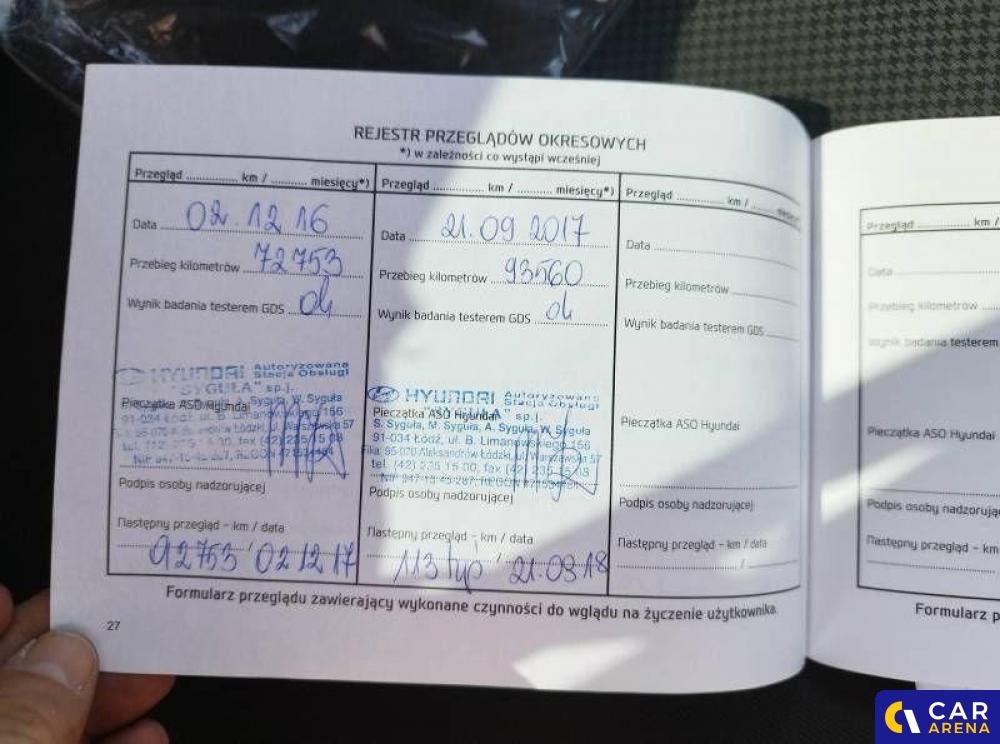 REJESTR PRZEGLĄDÓW OKRESOWYCH
*) w zależności co wystąpi wcześniej
Przegląd .............. km / .......... miesięcy*)
Data 02.12.16
Przebieg kilometrów 72753
Wynik badania testerem GDS ok
HYUNDAI Autoryzowana Stacja Obsługi
"SYGUŁA" sp.j.
A. Syguła, W. Syguła
Pieczątka ASO Hyundai
91-034 Łódź, ul. B. Limanowskiego 156
Podpis osoby nadzorującej
Następny przegląd – km / data
92753 / 02 12 17
Przegląd .............. km / .......... miesięcy*)
Data 21.09 2017
Przebieg kilometrów 93560
Wynik badania testerem GDS ok
HYUNDAI Autoryzowana Stacja Obsługi
"SYGUŁA" sp.j.
Pieczątka ASO Hyundai
S. Syguła, M. Syguła, A. Syguła, W. Syguła
91-034 Łódź, ul. B. Limanowskiego 156
Filia: 95-070 Aleksandrów Łódzki, ul. Warszawska 57
tel. (42) 235 15 00, fax (42) 235 15 08
Podpis osoby nadzorującej
Następny przegląd – km / data
113 tyś / 21.09.18
Przegląd .............. km /
Data
Przebieg kilometrów
Wynik badania testerem GDS
Pieczątka ASO Hyundai
Podpis osoby nadzorującej
Następny przegląd – km / data
Formularz przeglądu zawierający wykonane czynności do wglądu na życzenie użytkownika.
27
Przegląd .............. km /
Data
Przebieg kilometrów
Wynik badania testerem
Pieczątka ASO Hyundai
Podpis osoby nadzorując
Następny przegląd – km
Formularz p
CAR
ARENA